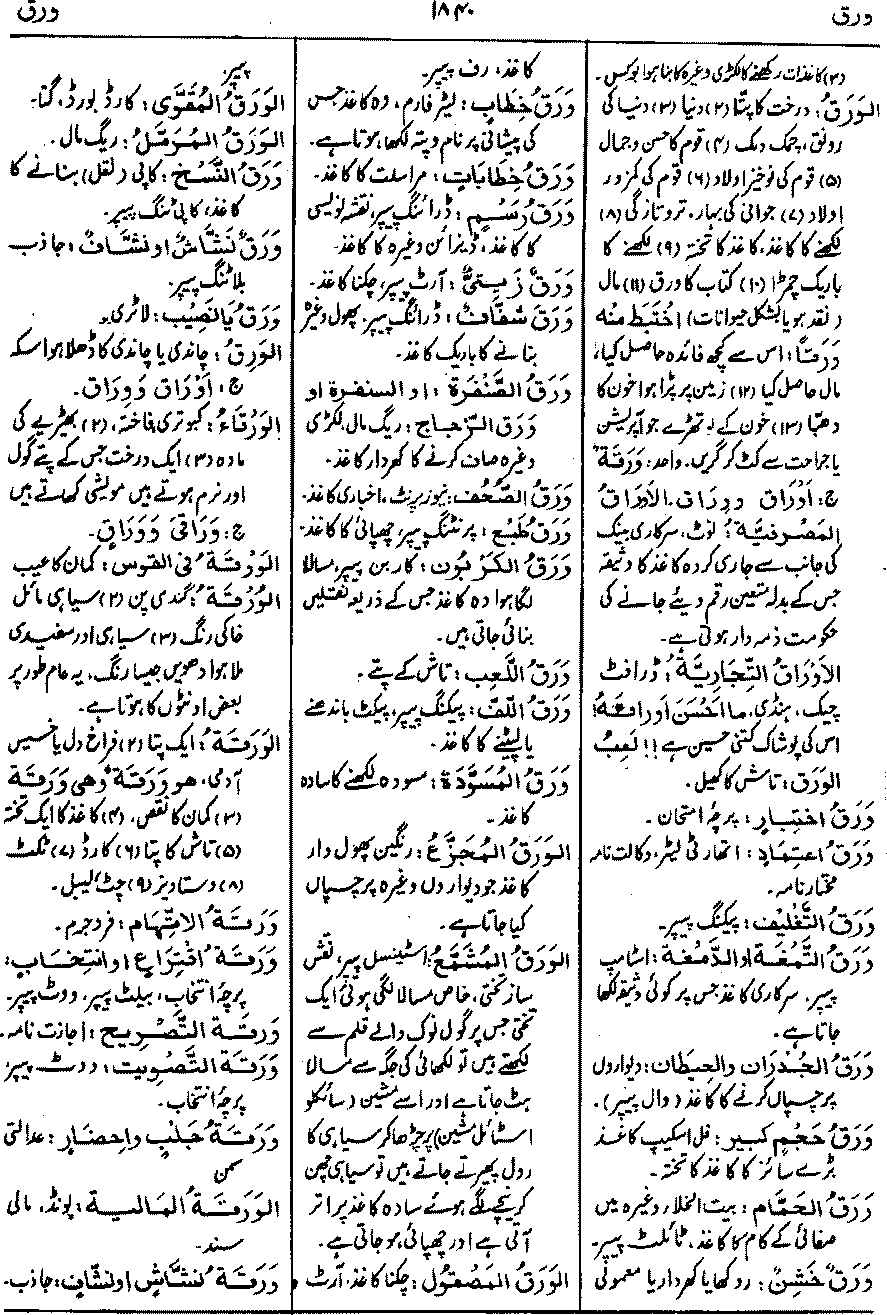 ورق
۱۸۴۰
ورق
(۳) کاغذات رکھنے کا لکڑی وغیرہ کا بنا ہوا بوکس۔
الوَرَقُ: درخت کا پتّا (۲) دنیا (۳) دنیا کی
رونق، چمک دمک (۴) قوم کا حسن و جمال
(۵) قوم کی نوخیز اولاد (۶) قوم کی کمزور
اولاد (۷) جوانی کی بہار، تروتازگی (۸)
لکھنے کا کاغذ، کاغذ کا تختہ (۹) لکھنے کا
باریک چمڑا (۱۰) کتاب کا ورق (۱۱) مال
(نقد ہو یا بشکل حیوانات) اخْتَبَطَ منه
وَرَقًا: اس سے کچھ فائدہ حاصل کیا،
مال حاصل کیا (۱۲) زمین پر پڑا ہوا خون کا
دھبّا (۱۳) خون کے لوتھڑے جو آپریشن
یا جراحت سے کٹ کر گریں۔ واحد: وَرَقَةٌ
ج: أَوْرَاق و وِرَاق۔ الأَوْرَاقُ
المَصْرفِيَّةُ: نوٹ، سرکاری بینک
کی جانب سے جاری کردہ کاغذ کا وثیقہ
جس کے بدلہ متعین رقم دیئے جانے کی
حکومت ذمہ دار ہوتی ہے۔
الأَوْرَاقُ التِّجَارِيَّةُ: ڈرافٹ
چیک، ہنڈی، ما أَحْسَنَ أَوْرَاقَهُ!
اس کی پوشاک کتنی حسین ہے!! لَعِبُ
الوَرَق: تاش کا کھیل۔
وَرَقُ اخْتِبَارٍ: پرچۂ امتحان۔
وَرَقُ اعْتِمَادٍ: اتھارٹی لیٹر، وکالت نامہ
مختار نامہ۔
وَرَقُ التَّغْلِيْفِ: پیکنگ پیپر۔
وَرَقُ التَّمْغَة او الدَّمْغَة: اسٹامپ
پیپر، سرکاری کاغذ جس پر کوئی وثیقہ لکھا
جاتا ہے۔
وَرَقُ الجُدْرَان والحِيطَان: دیواروں
پر چسپاں کرنے کا کاغذ (وال پیپر)۔
وَرَقُ حَجْمٍ كبيرٍ: فل اسکیپ کاغذ
بڑے سائز کا کاغذ کا تختہ۔
وَرَقُ الحَمَّام: بیت الخلاء وغیرہ میں
صفائی کے کام کا کاغذ، ٹائلٹ پیپر۔
وَرَقٌ خَشِنٌ: روکھا یا کھردار یا معمولی
کاغذ، رف پیپر۔
وَرَقُ خِطَابٍ: لیٹر فارم، وہ کاغذ جس
کی پیشانی پر نام و پتہ لکھا ہوتا ہے۔
وَرَقُ خِطَابَاتٍ: مراسلت کا کاغذ۔
وَرَقُ رَسْمٍ: ڈرائنگ پیپر، نقشہ نویسی
کا کاغذ، ڈیزائن وغیرہ کا کاغذ۔
وَرَقٌ زَيْتِيٌّ: آرٹ پیپر، چکنا کاغذ۔
وَرَقٌ شَفَّافٌ: ڈرائنگ پیپر، پھول وغیرہ
بنانے کا باریک کاغذ۔
وَرَقُ الصَّنْفَرَة: او السنفرة او
وَرَق الزّجاج: ریگ مال، لکڑی
وغیرہ صاف کرنے کا کھردار کاغذ۔
وَرَقُ الصُّحُف: نیوز پرنٹ، اخباری کاغذ۔
وَرَقُ طَبْعٍ: پرنٹنگ پیپر، چھپائی کا کاغذ۔
وَرَقُ الكَرْبُون: کاربن پیپر، مسالا
لگا ہوا وہ کاغذ جس کے ذریعہ نقلیں
بنائی جاتی ہیں۔
وَرَقُ اللَّعِب: تاش کے پتے۔
وَرَقُ اللَّفّ: پیکنگ پیپر، پیکٹ باندھنے
یا لپیٹنے کا کاغذ۔
وَرَقُ المُسَوَّدَة: مسودہ لکھنے کا سادہ
کاغذ۔
الوَرَقُ المُجَزَّعُ: رنگین پھول دار
کاغذ جو دیواروں وغیرہ پر چسپاں
کیا جاتا ہے۔
الوَرَقُ المُشَمَّعُ: اسٹینسل پیپر، نقش
ساز تختی، خاص مسالا لگی ہوئی ایک
تختی جس پر گول نوک والے قلم سے
لکھتے ہیں تو لکھائی کی جگہ سے مسالا
ہٹ جاتا ہے اور اسے مشین (سائکلو
اسٹائل مشین) پر چڑھا کر سیاہی کا
رول پھیرتے جاتے ہیں تو سیاہی چھن
کر نیچے لگے ہوئے سادہ کاغذ پر اتر
آتی ہے اور چھپائی ہو جاتی ہے۔
الوَرَقُ المَصْقُول: چکنا کاغذ، آرٹ
پیپر۔
الوَرَقُ المُقَوَّى: کارڈ بورڈ، گتا۔
الوَرَقُ المُرَمَّلُ: ریگ مال۔
وَرَقُ النَّسْخ: کاپی (نقل) بنانے کا
کاغذ، کاپئنگ پیپر۔
وَرَقٌ نَشَّاشٌ او نشَّافٌ: جاذب
بلاٹنگ پیپر۔
وَرَقُ يانَصِيْب: لاٹری۔
الوَرِقُ: چاندی یا چاندی کا ڈھلا ہوا سکہ
ج: أَوْرَاق وَ وِرَاق۔
الوَرْقَاءُ: کبوتری، فاختہ (۲) بھیڑیے کی
مادہ (۳) ایک درخت جس کے پتے گول
اور نرم ہوتے ہیں مویشی کھاتے ہیں
ج: وَرَاقَى وَ وَرَاقٍ۔
الوَرْقَةُ فى القوس: کمان کا عیب
الوُرْقَةُ: گندمی پن (۲) سیاہی مائل
خاکی رنگ (۳) سیاہی اور سفیدی
ملا ہوا دھویں جیسا رنگ، یہ عام طور پر
بعض اونٹوں کا ہوتا ہے۔
الوَرَقَةُ: ایک پتا (۲) فراخ دل یا خسیس
آدمی، هو وَرَقَةٌ وهى وَرَقَة
(۳) کمان کا نقص، (۴) کاغذ کا ایک تختہ
(۵) تاش کا پتا (۶) کارڈ (۷) ٹکٹ
(۸) دستاویز (۹) چٹ، لیبل۔
وَرَقَةُ الاتِّهَام: فرد جرم۔
وَرَقَةُ اقْتِرَاعٍ او انتخابٍ:
پرچۂ انتخاب، بیلٹ پیپر، ووٹ پیپر۔
وَرقةُ التَّصْرِيح: اجازت نامہ۔
وَرَقَةُ التَّصْوِيت: ووٹ پیپر
پرچۂ انتخاب۔
وَرَقَةُ جَلْبٍ و إحضارٍ: عدالتی
سمن
الوَرَقَةُ المالية: پونڈ، مالی
سند۔
وَرَقَةُ نَشَّاشٍ او نشَّافٍ: جاذب۔